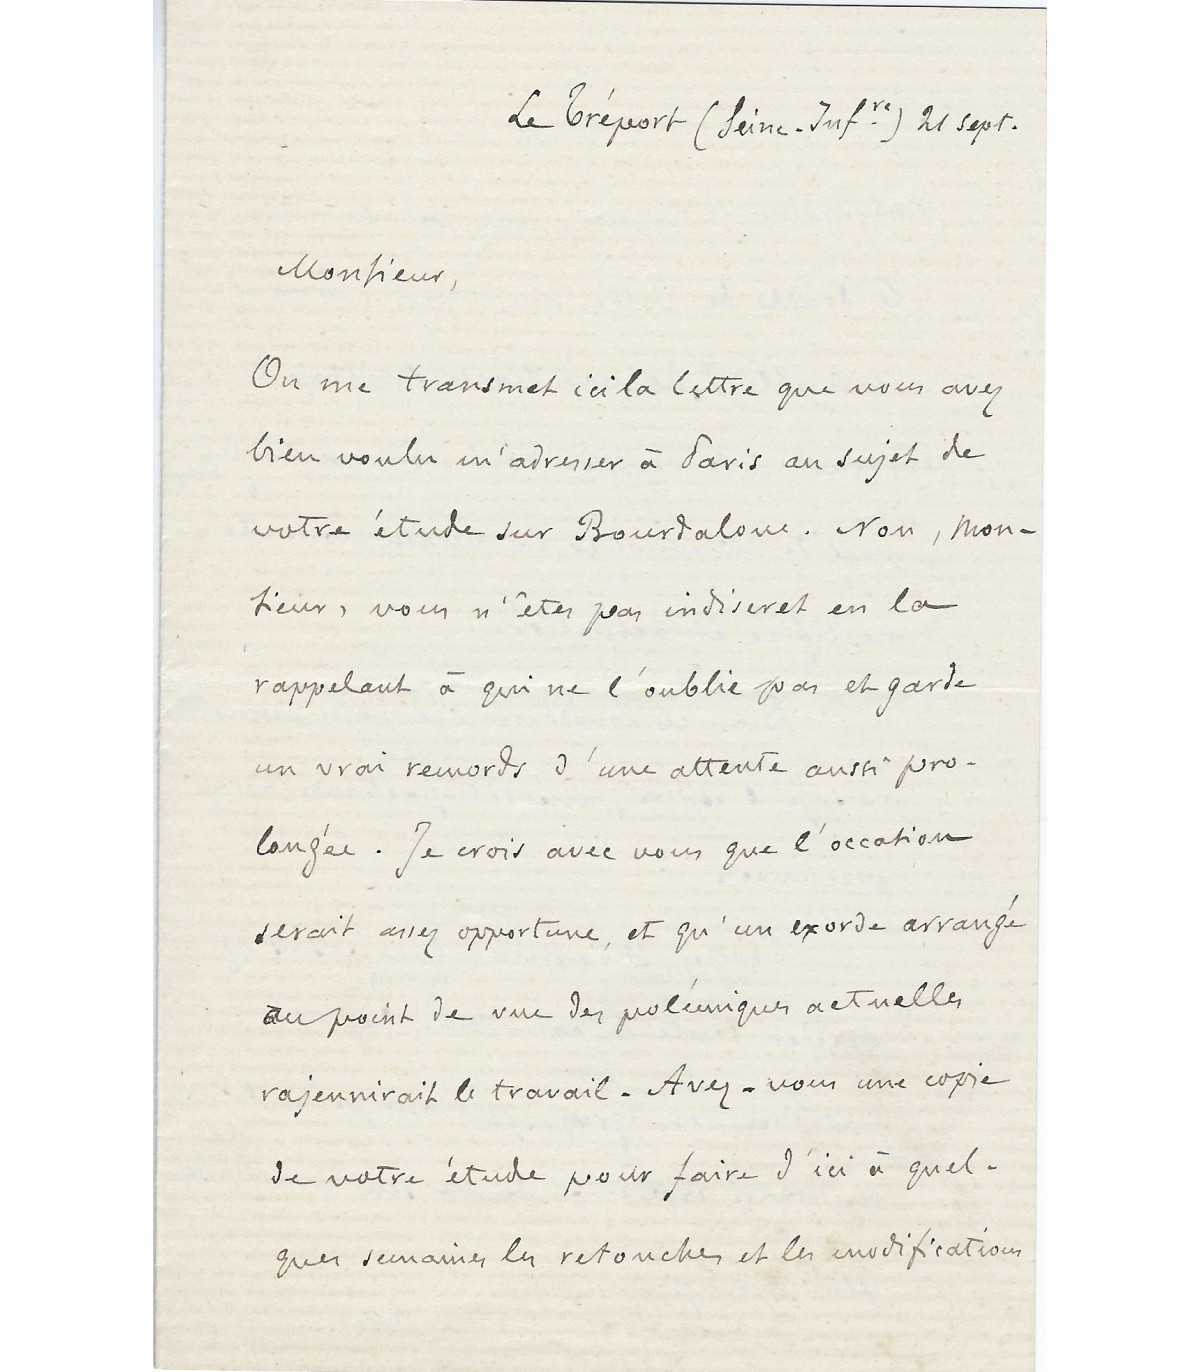 Le Tréport (Seine-Infre) 21 sept.
Monsieur,
On me transmet ici la lettre que vous avez
bien voulu m'adresser à Paris au sujet de
votre étude sur Bourdaloue. Non, Mon-
sieur, vous n'êtes pas indiscret en la
rappelant à qui ne l'oublie pas et garde
un vrai remords d'une attente aussi pro-
longée. Je crois avec vous que l'occasion
serait assez opportune, et qu'un exorde arrangé
au point de vue des polémiques actuelles
rajeunirait le travail. Avez-vous une copie
de votre étude pour faire d'ici à quel-
ques semaines les retouches et les modifications